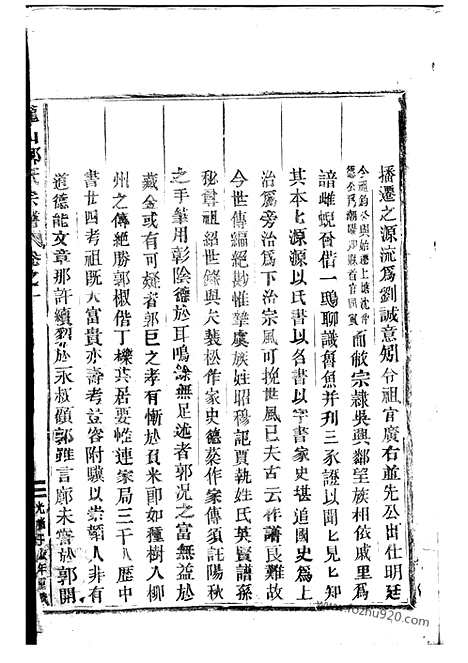 播遷之源流爲劉誠意矧令祖宦廣右並先公出仕明廷
令祖鈞公與始遷上塘沈
德公乃潮陽縣首官同寅
而敝宗隸吳興鄰望族相依戚里爲
諳雌蜺咎偕一鴞聊識魯魚并刋三豕證以聞匕見匕知
其本匕源源以氏書以名書以字書家史堪追國史爲上
治爲旁治爲下治宗風可挽世風已夫古云作譜良難故
今世傳編絕尠惟摯虞族姓昭穆記賈執姓氏英賢譜孫
秘尋祖紹世錄與夫裴松作家史德棻作家傳須託陽秋
之手筆用彰陰德於耳鳴滁無足述者郭況之富無益於
藏金或有可疑者郭巨之孝有慚於負米即如種樹入柳
州之傳絕勝郭椒偕丁櫟莫居要惟連家局三千入歷中
書廿四考祖既大富貴亦壽考豈容附驥以榮緊人非有
道德能文章那許續貂於永叔顧郭雖言廓未嘗於郭開
龍山郭氏宗譜
卷之一
光緒
年重
www.fozhu920.com